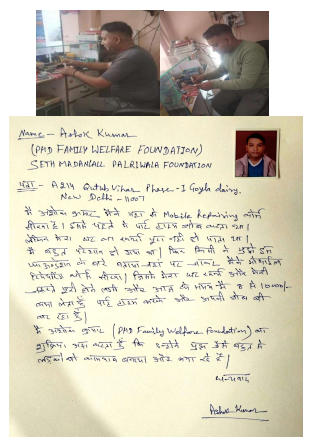 Name - Ashok Kumar
(PHD FAMILY WELFARE FOUNDATION)
SETH MADANLALL PALRIWALA FOUNDATION
पता - A214 Qutub Vihar Phase-I Goyla dairy,
New Delhi - 11007
मैं अशोक कुमार मैंने यहाँ से Mobile Repairing कोर्स
सीखा है। इससे पहले मैं पार्ट टाइम जॉब करता था।
मेरा घर का खर्चा पूरा नहीं हो पाता था।
मैं बहुत परेशान हो गया था। फिर किसी ने मुझे इस
के बारे बताया यहाँ पर मैंने मोबाईल
रिपेयरिंग कोर्स सीखा। जिससे मेरा घर खर्च और मेरी
होने लगी और आज के समय में 8 से 10000/-
कमा लेता हूँ पार्ट टाइम करके और अपनी जॉब भी
कर रहा हूँ।
मैं अशोक कुमार (PHD Family Welfare Foundation) का
शुक्रिया अदा करता हूँ कि इन्होंने मुझ जैसे बहुत से
लड़कों को कामयाब बनाया और बना रहे हैं।
धन्यवाद
Ashok Kumar